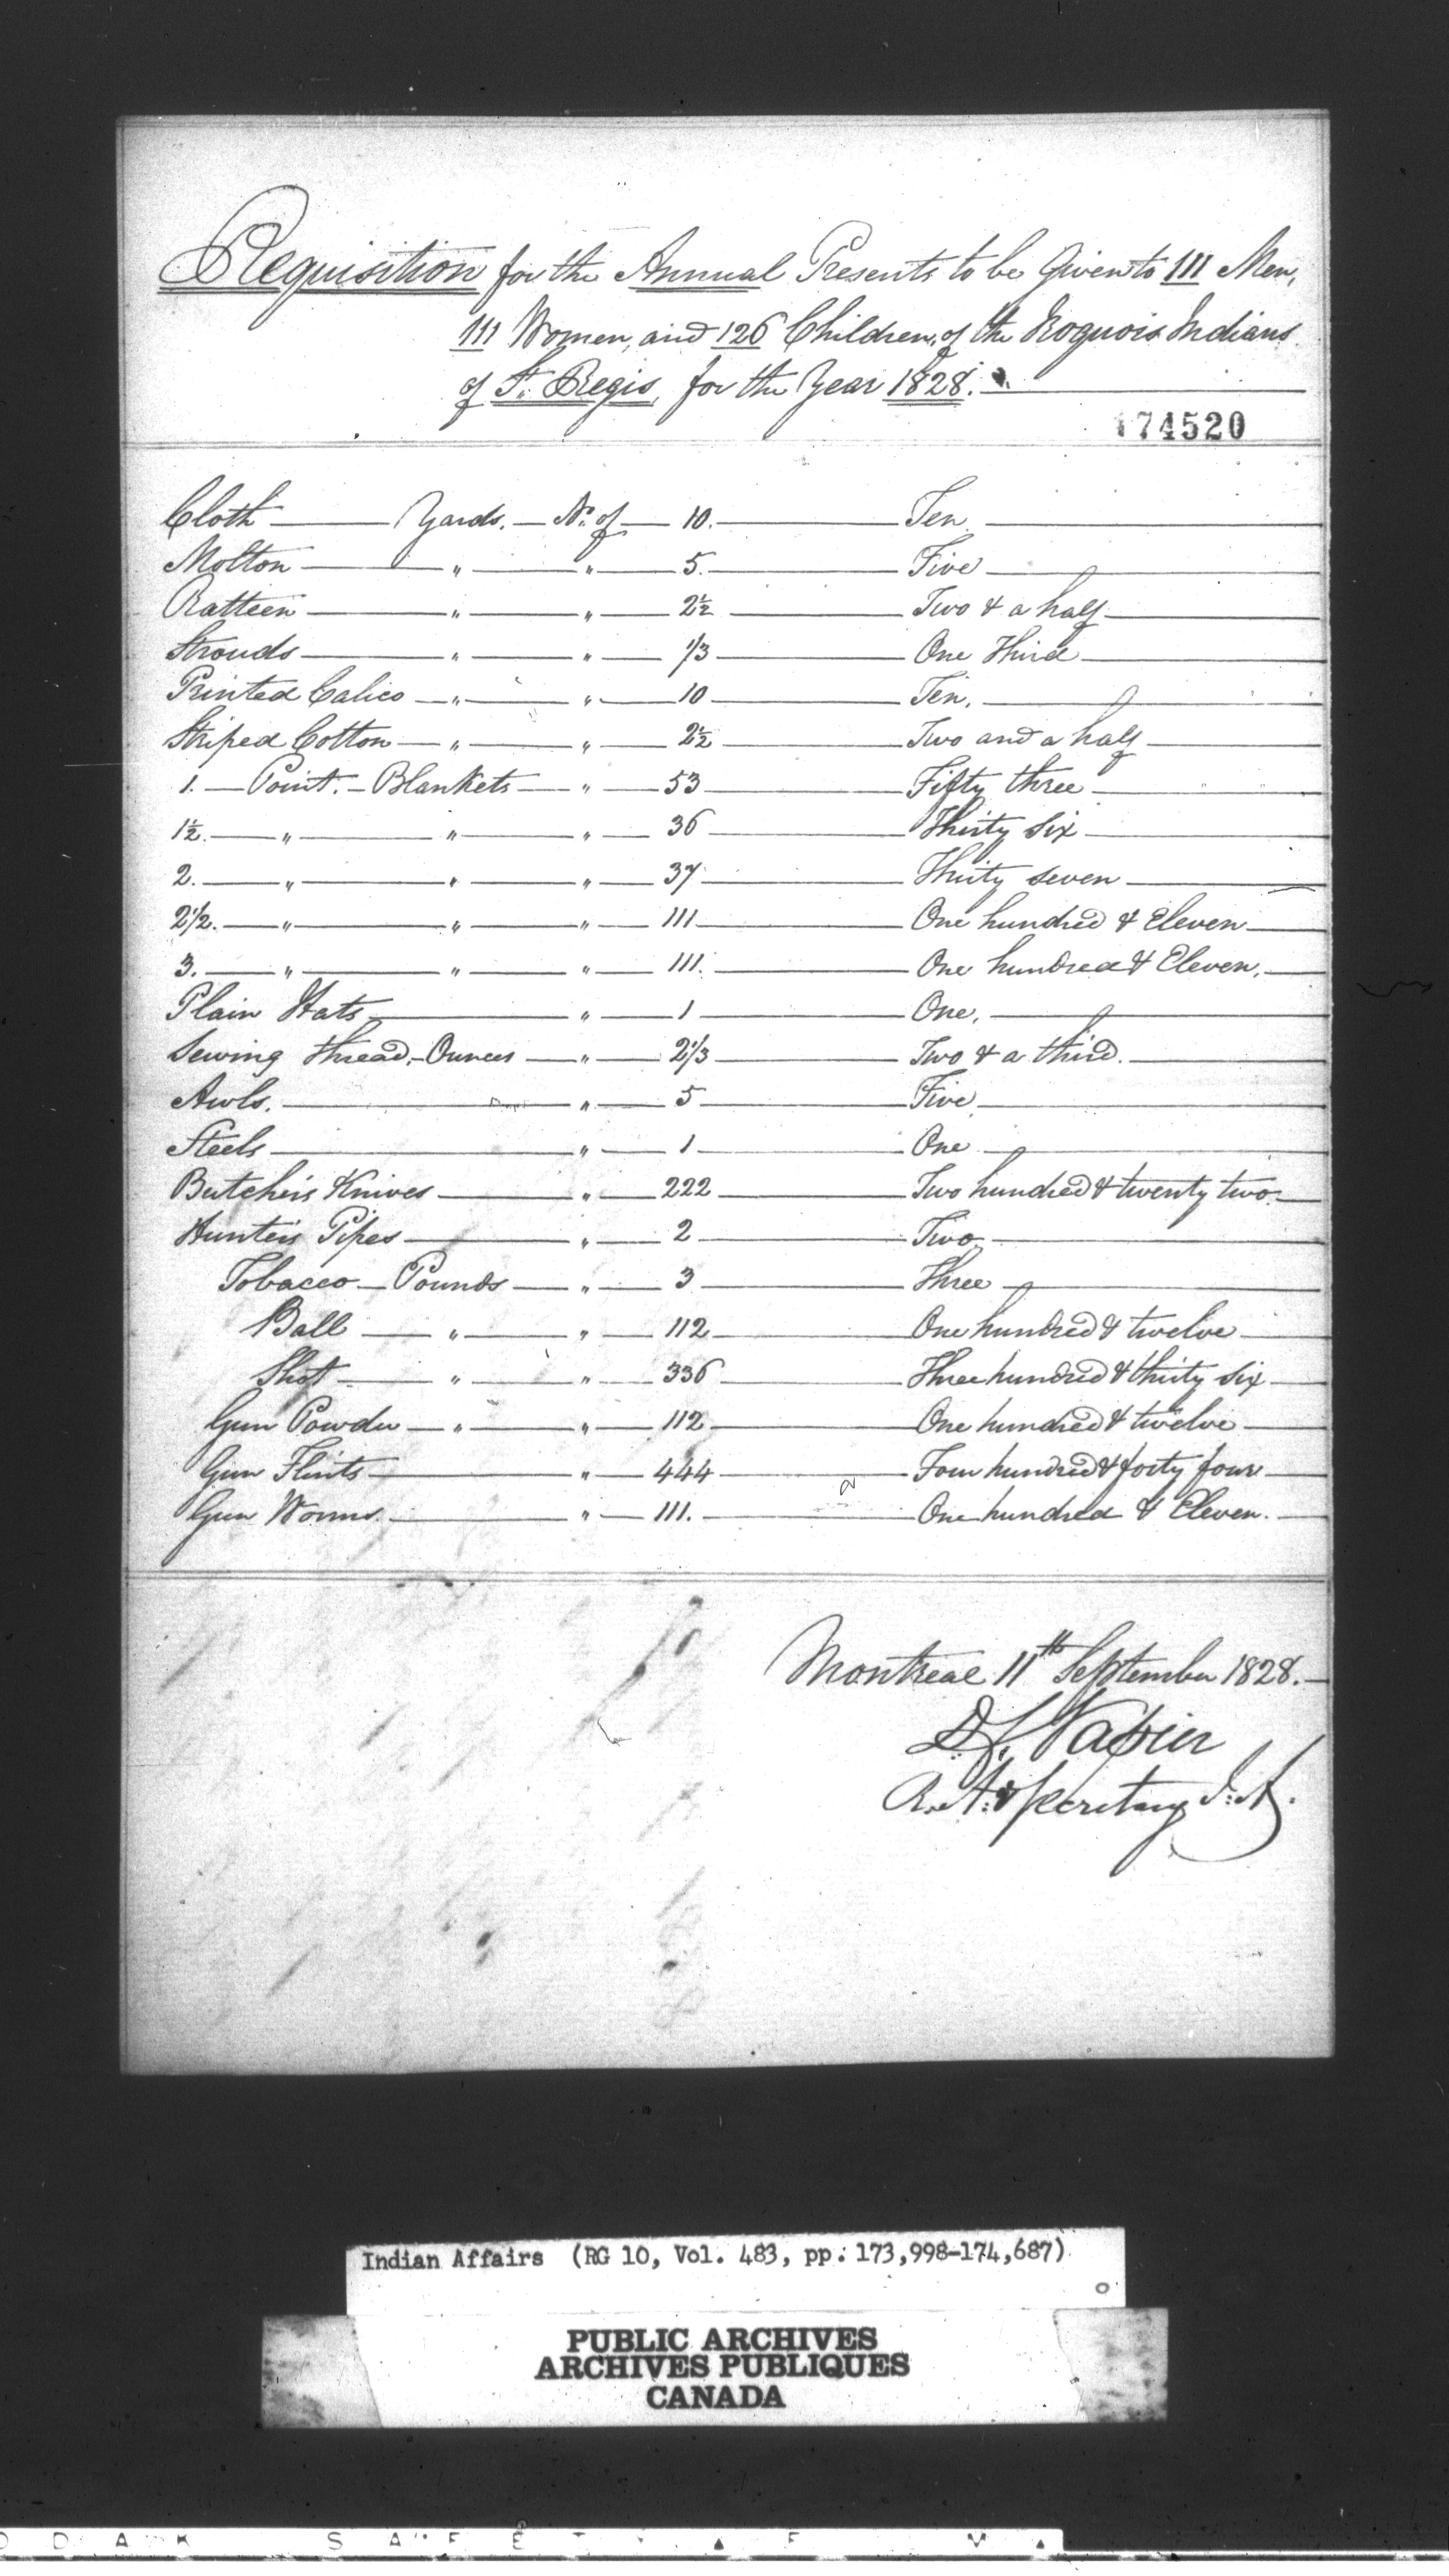 Requisition for the Annual Presents to be Given to 111 Men,
111 Women, and 126 Children, of the Iroquois Indians
of St. Regis, for the Year 1828.
174520
Cloth Yards. No. of 10. Ten.
Molton " " 5. Five
Ratteen " " 2½ Two & a half
Strouds " " 1/3 One Third
Printed Calico " " 10 Ten.
Striped Cotton " " 2½ Two and a half
1. Point. Blankets " 53 Fifty three
1½. " " " 36 Thirty Six
2. " " " 37 Thirty seven
2½. " " " 111 One hundred & Eleven
3. " " " 111. One hundred & Eleven.
Plain Hats " 1 One.
Sewing thread, Ounces " 2 1/3 Two & a third.
Awls. " 5 Five
Steels " 1 One
Butcher's Knives " 222 Two hundred & twenty two.
Hunter's Pipes " 2 Two
Tobacco Pounds " 3 Three
Ball " " 112 One hundred & twelve
Shot " " 336 Three hundred & thirty six
Gun Powder " " 112 One hundred & twelve
Gun Flints " 444 Four hundred & forty four
Gun Worms " 111. One hundred & Eleven.
Montreal 11th September 1828.
D. C. Napier
R. A. & Secretary I. A.
Indian Affairs (RG 10, Vol. 483, pp. 173,998-174,687)
PUBLIC ARCHIVES
ARCHIVES PUBLIQUES
CANADA